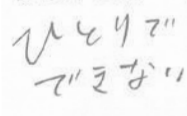 ひとりで
できない